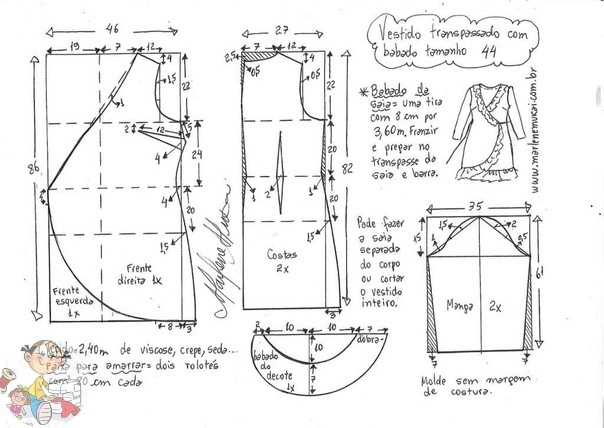 46
19
7
12
4
1,5
22
1
86
2
12
1,5
4
24
4
20
1,5
8
3
Frente
direita 1x
Frente
esquerda
1x
27
7
12
2,5
0,5
4
1,5
22
20
82
1
2
1
20
1,5
3
Costas
2x
Marlene Mukai
Vestido transpassado com
babado tamanho 44
* Babado da
saia= uma tira
com 8 cm por
3,60m, Franzir
e pregar no
transpasse da
saia e barra.
www.marlenemukai.com.br
Pode fazer
a saia
separada
do corpo
ou cortar
o vestido
inteiro.
35
1,5
2
1
0,5
Manga
2x
7
7
Molde sem margem
de costura.
=2,40m de viscose, crepe, seda...
para amarrar= dois rolotês
cm cada
2
10
10
7
dobra
10
7
babado
do
decote
1x